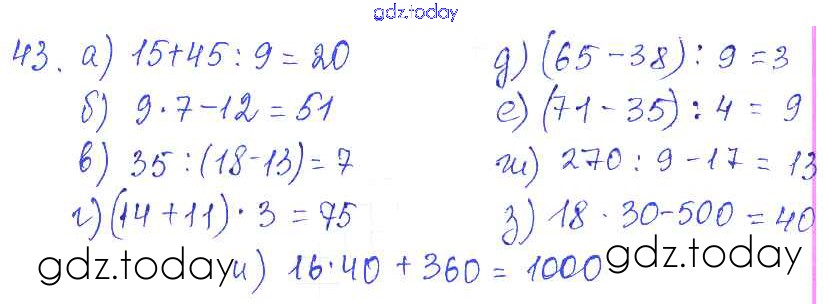 gdz.today
43. а) 15+45:9=20
б) 9·7-12=51
в) 35:(18-13)=7
г) (14+11)·3=75
д) (65-38):9=3
е) (71-35):4=9
ж) 270:9-17=13
з) 18·30-500=40
gdz.today
и) 16·40+360=1000
gdz.today